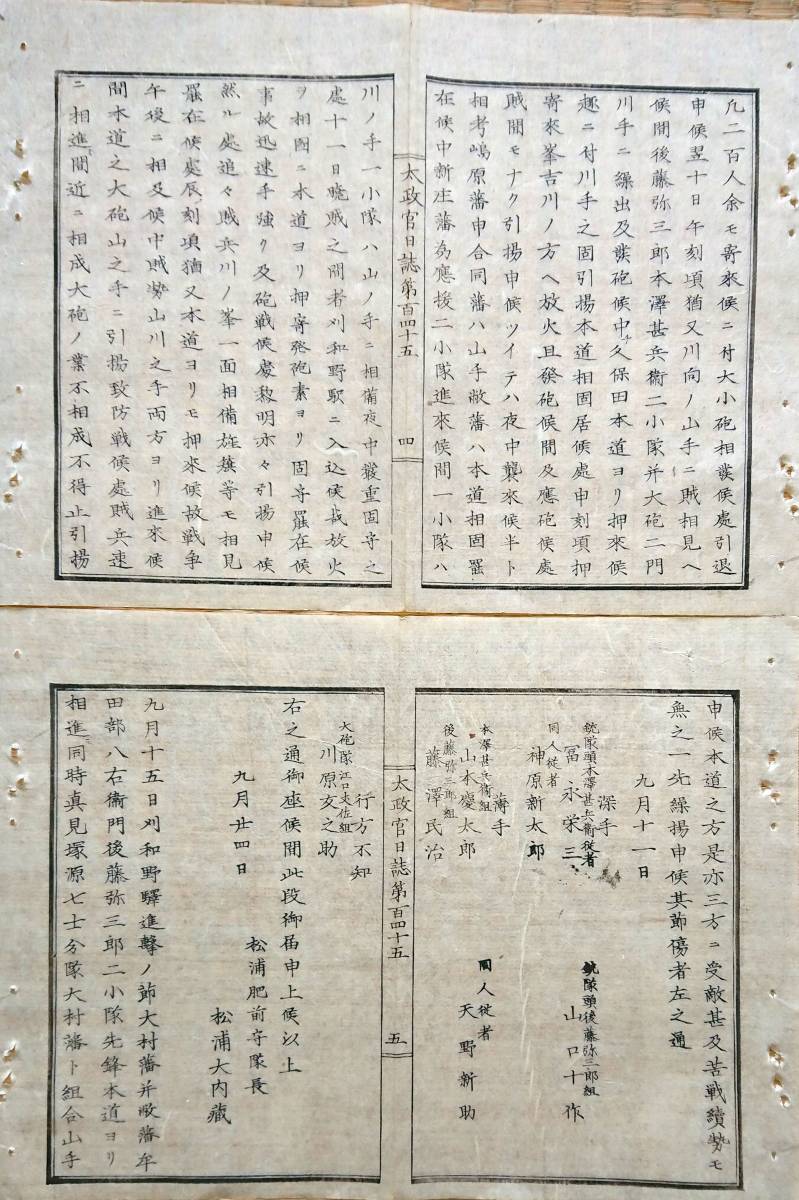 凢二百人余モ寄來候ニ付大小砲相發候處引退
申候翌十日午刻頃猶又川向ノ山手ニ賊相見ヘ
候間後藤弥三郎本澤甚兵衞二小隊并大砲二門
川手ニ繰出及發砲候中久保田本道ヨリ押來候
趣ニ付川手之固引揚本道相固居候處申刻頃押
寄來峯吉川ノ方ヘ放火且發砲候間及應砲候處
賊聞モナク引揚申候ツイテハ夜中襲來候半ト
相考嶋原藩申合同藩ハ山手敝藩ハ本道相固罷
在候中新庄藩為應援二小隊進來候間一小隊ハ
太政官日誌第百四十五
四
川ノ手一小隊ハ山ノ手ニ相備夜中嚴重固守之
處十一日曉賊之間者刈和野駅ニ入込候哉放火
ヲ相圖ニ本道ヨリ押寄発砲素ヨリ固守罷在候
事故迅速手強ク及砲戦候處黎明亦々引揚申候
然ル處追々賊兵川ノ峯一面相備旌旗等モ相見
罷在候處辰ノ刻頃猶又本道ヨリモ押來候故戦争
午後ニ相及候中賊勢山川之手両方ヨリ進來候
間本道之大砲山之手ニ引揚致防戦候處賊兵速
ニ相進間近ニ相成大砲ノ業不相成不得止引揚
申候本道之方是亦三方ニ受敵甚及苦戦續勢モ
無之一先繰揚申候其節傷者左之通
九月十一日
深手
銃隊頭本澤甚兵衞従者
冨永栄三
銃隊頭後藤弥三郎組
山口十作
同人従者
神原新太郎
薄手
本澤甚兵衞組
山本慶太郎
同人従者
天野新助
後藤弥三郎組
藤澤民治
太政官日誌第百四十五
五
行方不知
大砲隊江口夫佐組
川原亥之助
右之通御座候間此段御届申上候以上
九月廿四日
松浦肥前守隊長
松浦大内藏
九月十五日刈和野驛進擊ノ節大村藩并敝藩牟
田部八右衞門後藤弥三郎二小隊先鋒本道ヨリ
相進同時真見塚源七士分隊大村藩ト組合山手